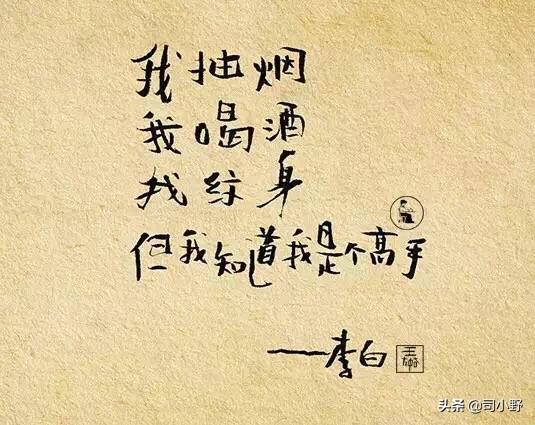 我抽烟
我喝酒
我纹身
但我知道我是个高手
——李白
头条 @司小野